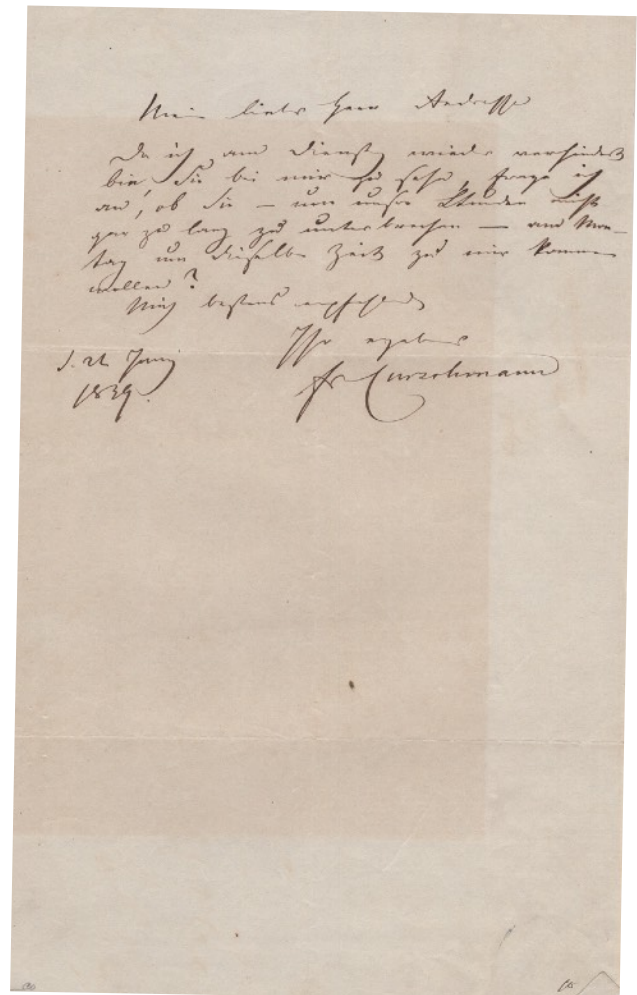 Mein lieber Herr
Da ich am Dienstg wieder verhindert
bin, Sie bei mir zu sehn, frage ich
an, ob Sie – um unsre Stunden nicht
gar zu lang zu unterbrechen – am Mon-
tag um dieselbe Zeit zu mir kommen
wollen?
Mich bestens empfehlend
Ihr ergebner
Fr Curschmann
d. 21 Juny
1839.